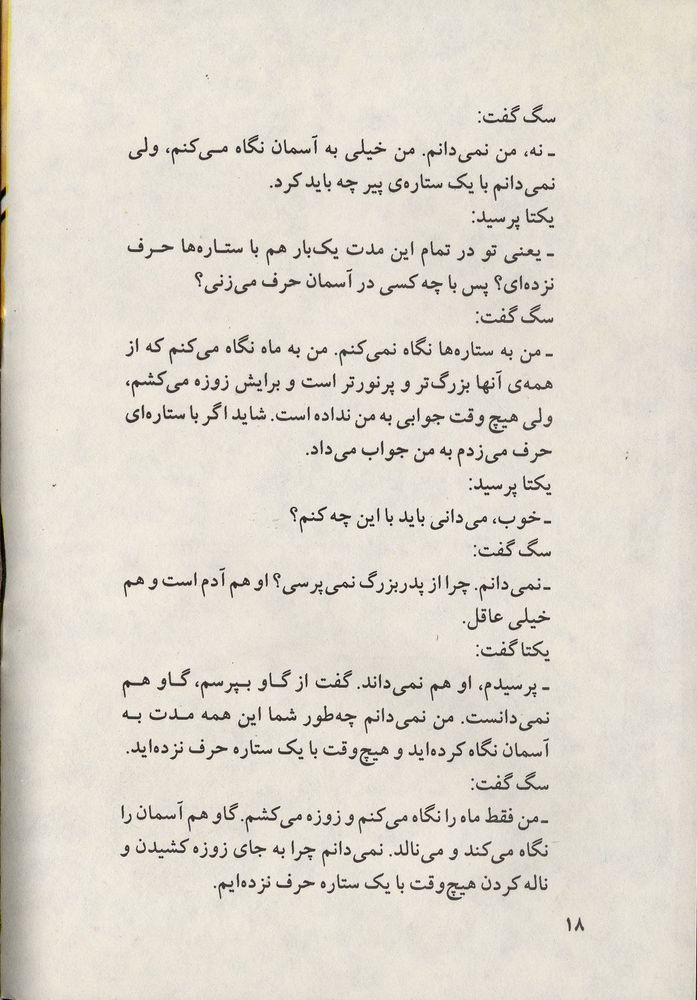 سگ گفت:
ـ نه، من نمی‌دانم. من خیلی به آسمان نگاه مـی‌کنم، ولی
نمی‌دانم با یک ستاره‌ی پیر چه باید کرد.
یکتا پرسید:
ـ یعنی تو در تمام این مدت یک‌بار هم با ستـاره‌ها حـرف
نزده‌ای؟ پس با چه کسی در آسمان حرف می‌زنی؟
سگ گفت:
ـ من به ستاره‌ها نگاه نمی‌کنم. من به ماه نگاه می‌کنم که از
همه‌ی آنها بزرگ‌تر و پرنورتر است و برایش زوزه می‌کشم،
ولی هیچ وقت جوابی به من نداده است. شاید اگر با ستاره‌ای
حرف می‌زدم به من جواب می‌داد.
یکتا پرسید:
ـ خوب، می‌دانی باید با این چه کنم؟
سگ گفت:
ـ نمی‌دانم. چرا از پدربزرگ نمی‌پرسی؟ او هم آدم است و هم
خیلی عاقل.
یکتا گفت:
ـ پرسیدم، او هم نمی‌داند. گفت از گـاو بـپرسم، گـاو هـم
نمی‌دانست. من نمی‌دانم چه‌طور شما این همه مـدت بـه
آسمان نگاه کرده‌اید و هیچ‌وقت با یک ستاره حرف نزده‌اید.
سگ گفت:
ـ من فقط ماه را نگاه می‌کنم و زوزه می‌کشم. گاو هم آسمان را
نگاه می‌کند و می‌نالد. نمی‌دانم چرا به جای زوزه کشیدن و
ناله کردن هیچ‌وقت با یک ستاره حرف نزده‌ایم.
۱۸